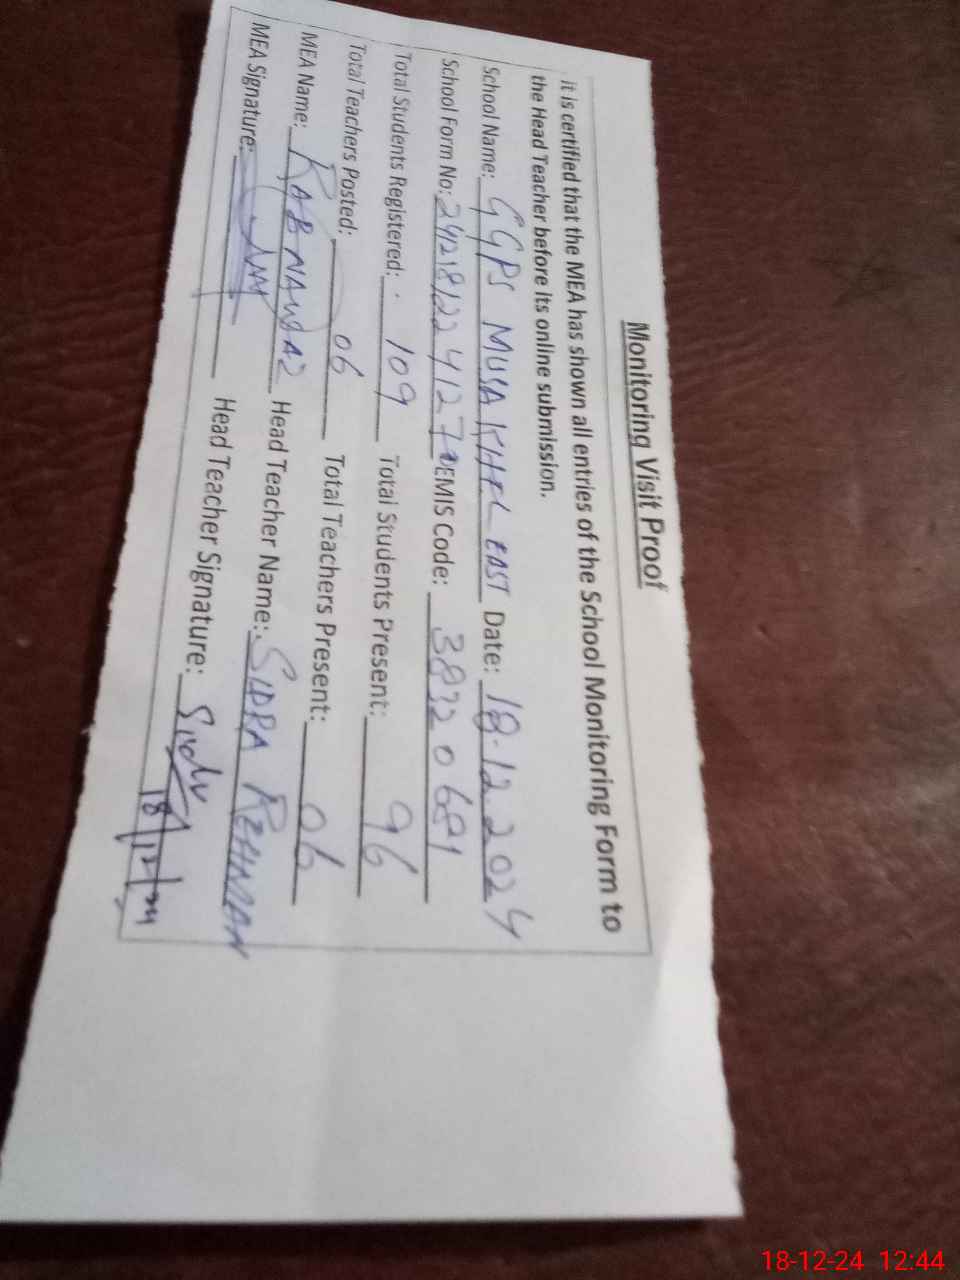 Monitoring Visit Proof
it is certified that the MEA has shown all entries of the School Monitoring Form to
the Head Teacher before its online submission.
School Name: GGPS MUSA KHEL EAST Date: 18.12.2024
School Form No: EMIS Code: 38220681
Total Students Registered: 109 Total Students Present: 96
Total Teachers Posted: 06 Total Teachers Present: 06
MEA Name: RAB NAWAZ Head Teacher Name: SIDRA REHMAN
MEA Signature: Head Teacher Signature:
18/12/24
18-12-24 12:44